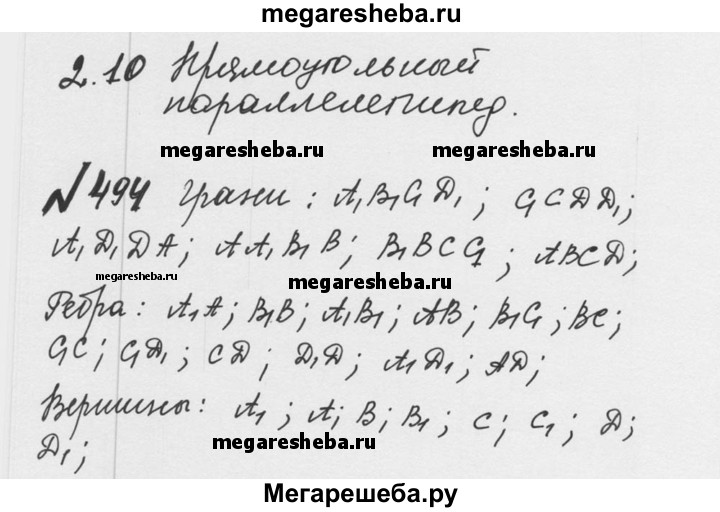 megaresheba.ru
2.10 Прямоугольный
параллелепипед.
megaresheba.ru megaresheba.ru
№494 Грани: A₁B₁C₁D₁; C₁CDD₁;
A₁D₁DA; AA₁B₁B; B₁BCC₁; ABCD;
megaresheba.ru megaresheba.ru
Ребра: A₁A; B₁B; A₁B₁; AB; B₁C₁; BC;
C₁C; C₁D₁; CD; D₁D; A₁D₁; AD;
Вершины: A₁; A; B; B₁; C; C₁; D;
megaresheba.ru
D₁;
Мегарешеба.ру